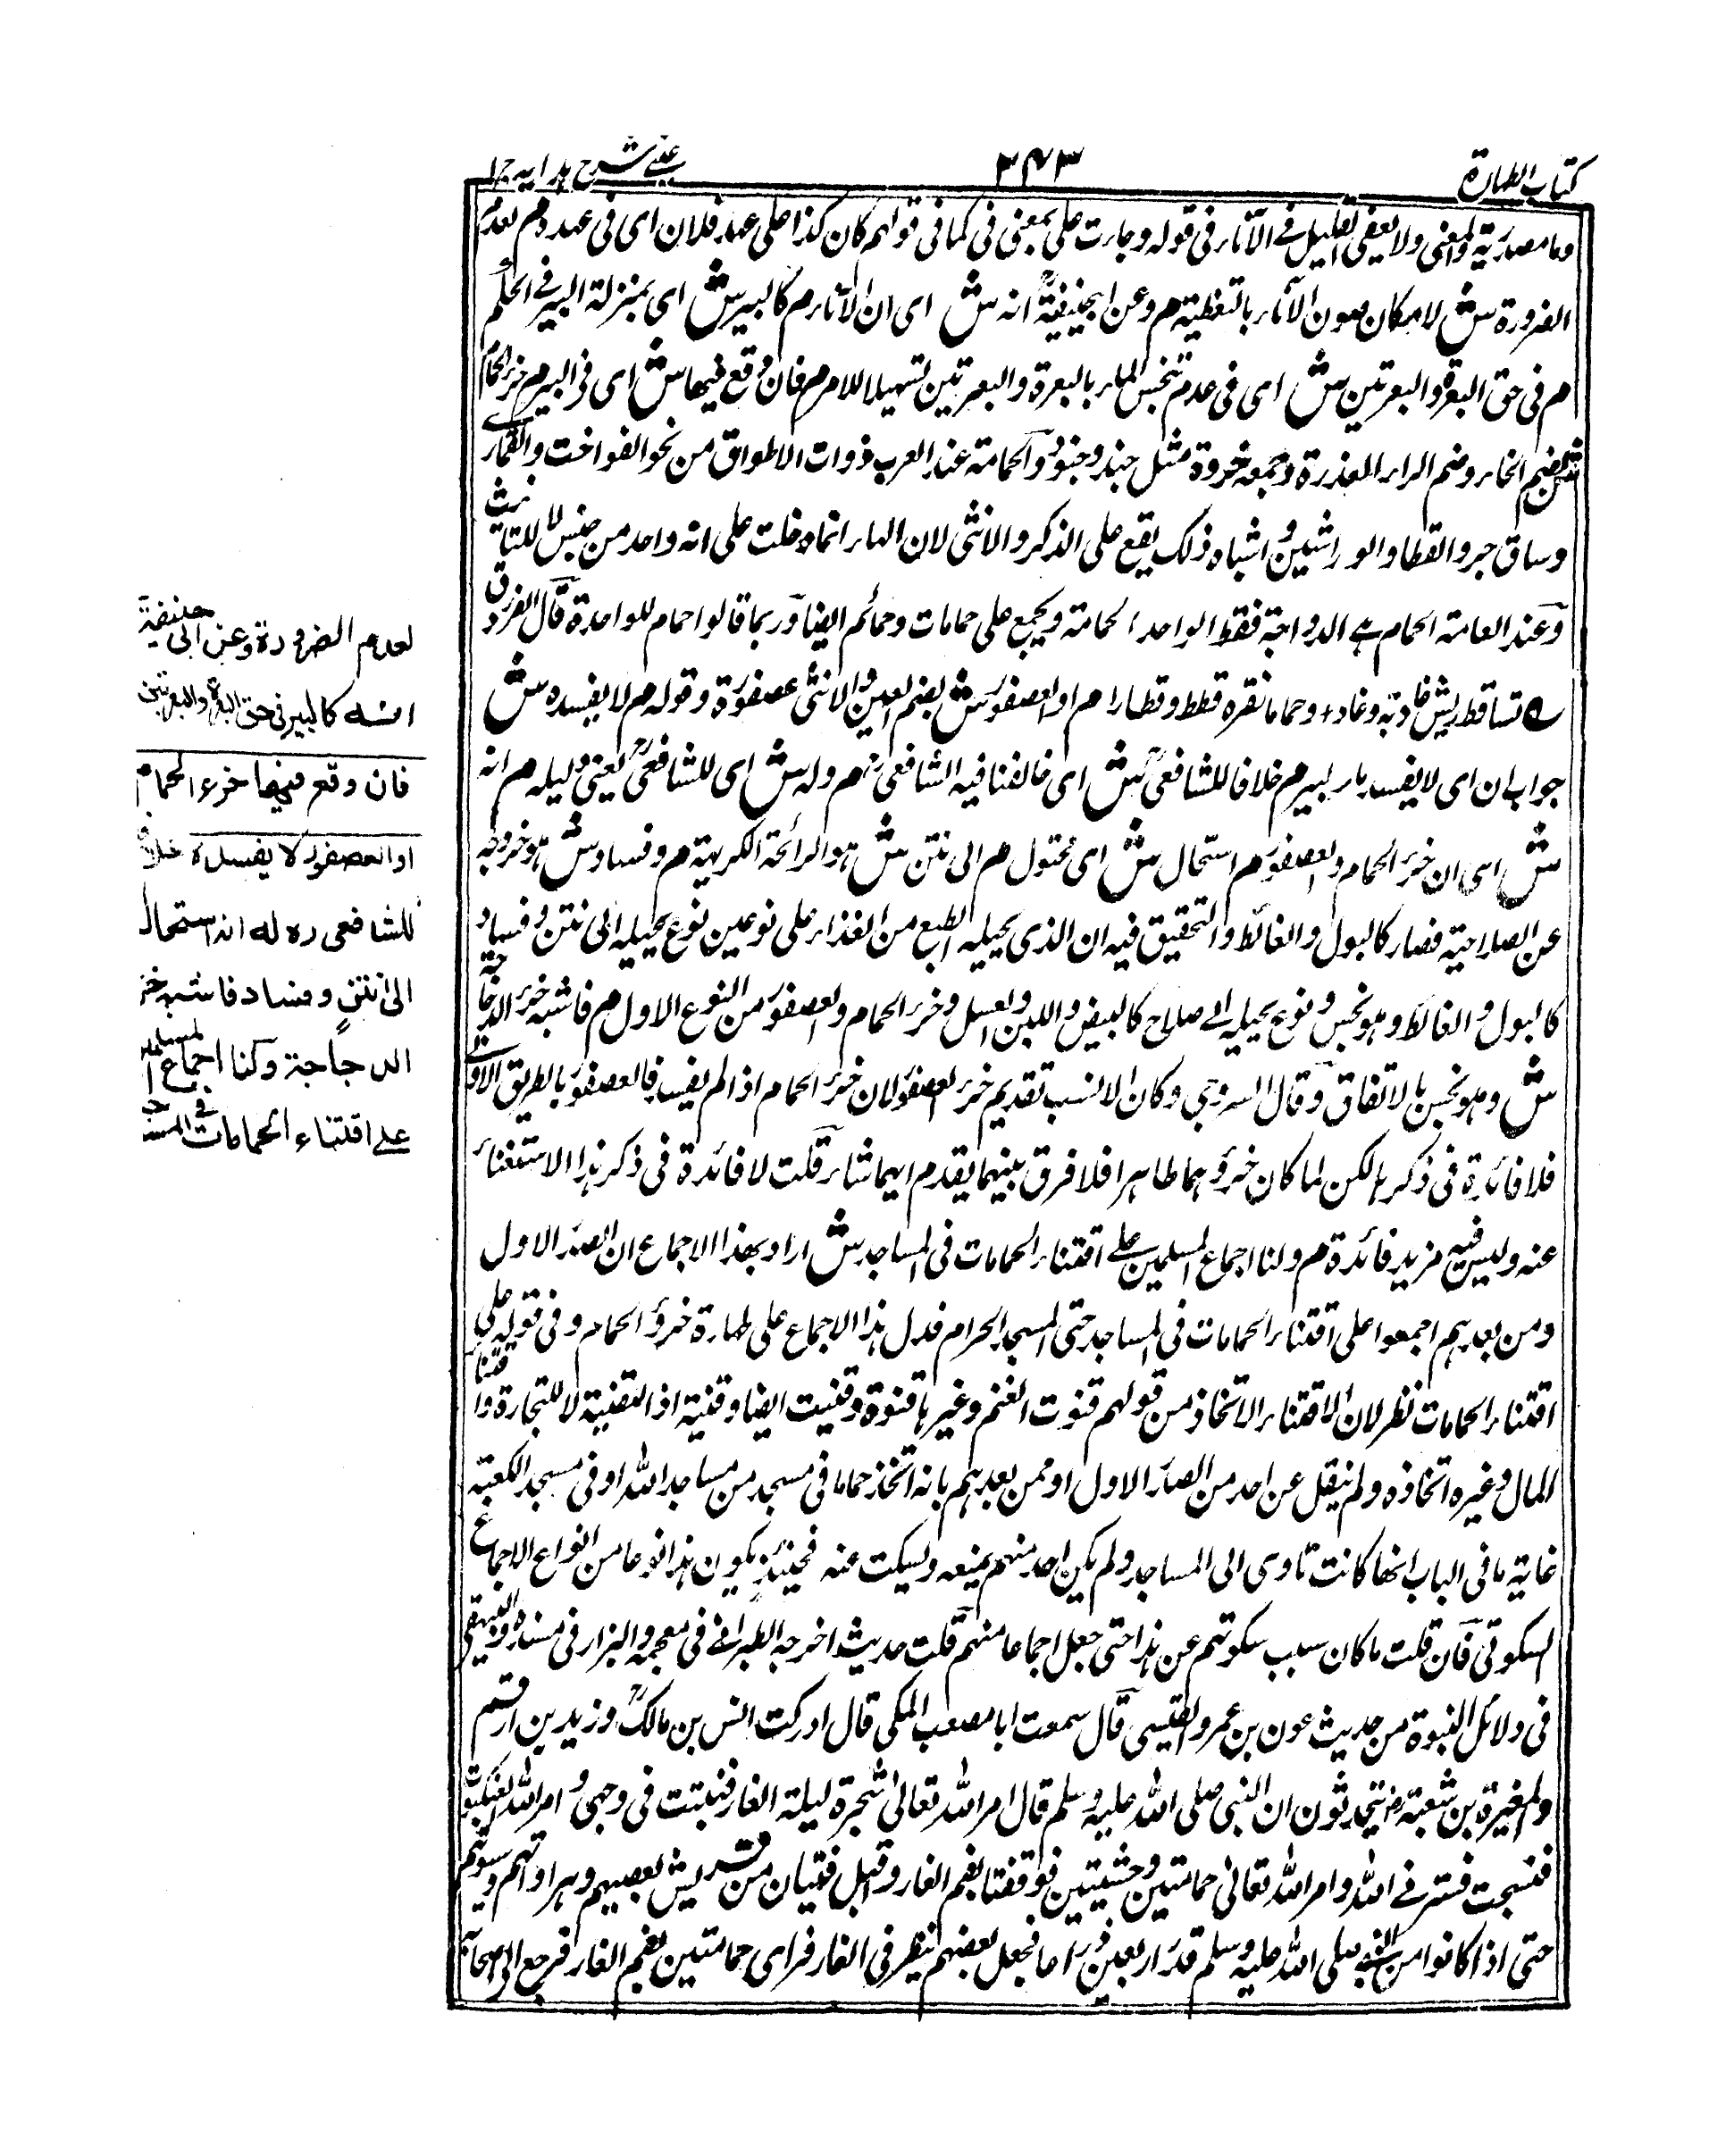 كتاب الطهارة
٣٤٣
عيني شرح هداية ج١
وما مصدرية والمعنى ولا يعفى القليل في الآناء في قوله وجاءت على بمعنى في كما في قولهم كان كذا على عهد فلان اى فى عهده م لعدم
الضرورة ش لامكان صون الآناء بالتغطية م وعن ابيحنيفة انه ش اى ان الاناء م كالبير ش اى بمنزلة البير فى الحكم
م فى حق البعرة والبعرتين ش اى فى عدم تنجس الماء بالبعرة والبعرتين تسهيلا للامر م فان وقع فيها ش اى فى البير م خرء الحمام
ش بضم الخاء وضم الراء العذرة وجمعه خروة مثل جند وجنود والحمامة عند العرب ذوات الاطواق من نحو الفواخت والقمارى
وساق حر والقطا والوراشين واشباه ذلك يقع على الذكر والانثى لان الهاء انما دخلت على انه واحد من جنس لا للتانيث
وعند العامة الحمام هى الدواجة فقط الواحد الحمامة ويجمع على حمامات وحمائم ايضا وربما قالوا حمام للواحدة قال الفرزدق
تساقط ريش غادية وغاد + وحماما نقرة قطط وقطارا م او العصفور ش بضم العين والانثى عصفورة وقوله م لا يفسده ش
جواب ان اى لا يفسد ماء البير م خلافا للشافعى ش اى خالفنا فيه الشافعى م وله ش اى للشافعى يعنى دليله م انه
ش اى ان خرء الحمام والعصفور م استحال ش اى تحول م الى نتن ش هو الرائحة الكريهة م وفساد ش هو خروجه
عن الصلاحية فصار كالبول والغائط والتحقيق فيه ان الذى يحيله الطبع من الغذاء على نوعين نوع يحيله الى نتن وفساد
كالبول والغائط وهو نجس ونوع يحيله الى صلاح كالبيض واللبن والعسل وخرء الحمام والعصفور من النوع الاول م فاشبه خرء الدجاجة
ش وهو نجس بالاتفاق وقال السروجى وكان الانسب تقديم خرء العصفور لان خرء الحمام اذا لم يفسد فالعصفور بالطريق الاولى
فلا فائدة فى ذكره لكن لما كان خرؤهما طاهرا فلا فرق بينهما يقدم ايهما شاء قلت لا فائدة فى ذكر هذا الاستغناء
عنه وليس فيه مزيد فائدة م ولنا اجماع المسلمين على اقتناء الحمامات فى المساجد ش اراد بهذا الاجماع ان الصدر الاول
ومن بعدهم اجمعوا على اقتناء الحمامات فى المساجد حتى المسجد الحرام فدل هذا الاجماع على طهارة خرؤ الحمام وفى قوله على
اقتناء الحمامات نظر لان الاقتناء الاتخاذ من قولهم قنوت الغنم وغيرها قنوة وقنيت ايضا وقنية اذا اقتنية لا للتجارة واقتناء
المال وغيره اتخاذه ولم ينقل عن احد من الصدر الاول او ممن بعدهم بانه اتخذ حماما فى مسجد من مساجد الله او فى مسجد الكعبة
غاية ما فى الباب انها كانت تاوى الى المساجد ولم يكن احد منهم يمنعه ويسكت عنه فحينئذ يكون هذا نوعا من انواع الاجماع
السكوتى فان قلت ما كان سبب سكوتهم عن هذا حتى جعل اجماعا منهم قلت حديث اخرجه الطبرانى فى معجمه والبزار فى مسنده والبيهقى
فى دلائل النبوة من حديث عون بن عمرو القيسى قال سمعت ابا مصعب المكى قال ادركت انس بن مالك وزيد بن ارقم
والمغيرة بن شعبة يتحدثون ان النبى صلى الله عليه وسلم قال امر الله تعالى شجرة ليلة الغار فنبتت فى وجهى وامر الله العنكبوت
فنسجت فسترنى الله وامر الله تعالى حمامتين وحشيتين فوقفتا بفم الغار واقبل فتيان من قريش بعصيهم وهراواتهم وسيوفهم
حتى اذا كانوا من النبى صلى الله عليه وسلم قدر اربعين ذراعا فجعل بعضهم ينظر فى الغار فراى حمامتين بفم الغار فرجع الى اصحابه
لعدم الضرورة وعن ابى حنيفة
انه كالبير فى حق البعرة والبعرتين
فان وقع فيها خرء الحمام
او العصفور لا يفسده خلافا
للشافعى ره له انه استحال
الى نتن وفساد فاشبه خرء
الدجاجة ولنا اجماع المسلمين
على اقتناء الحمامات فى المسجد